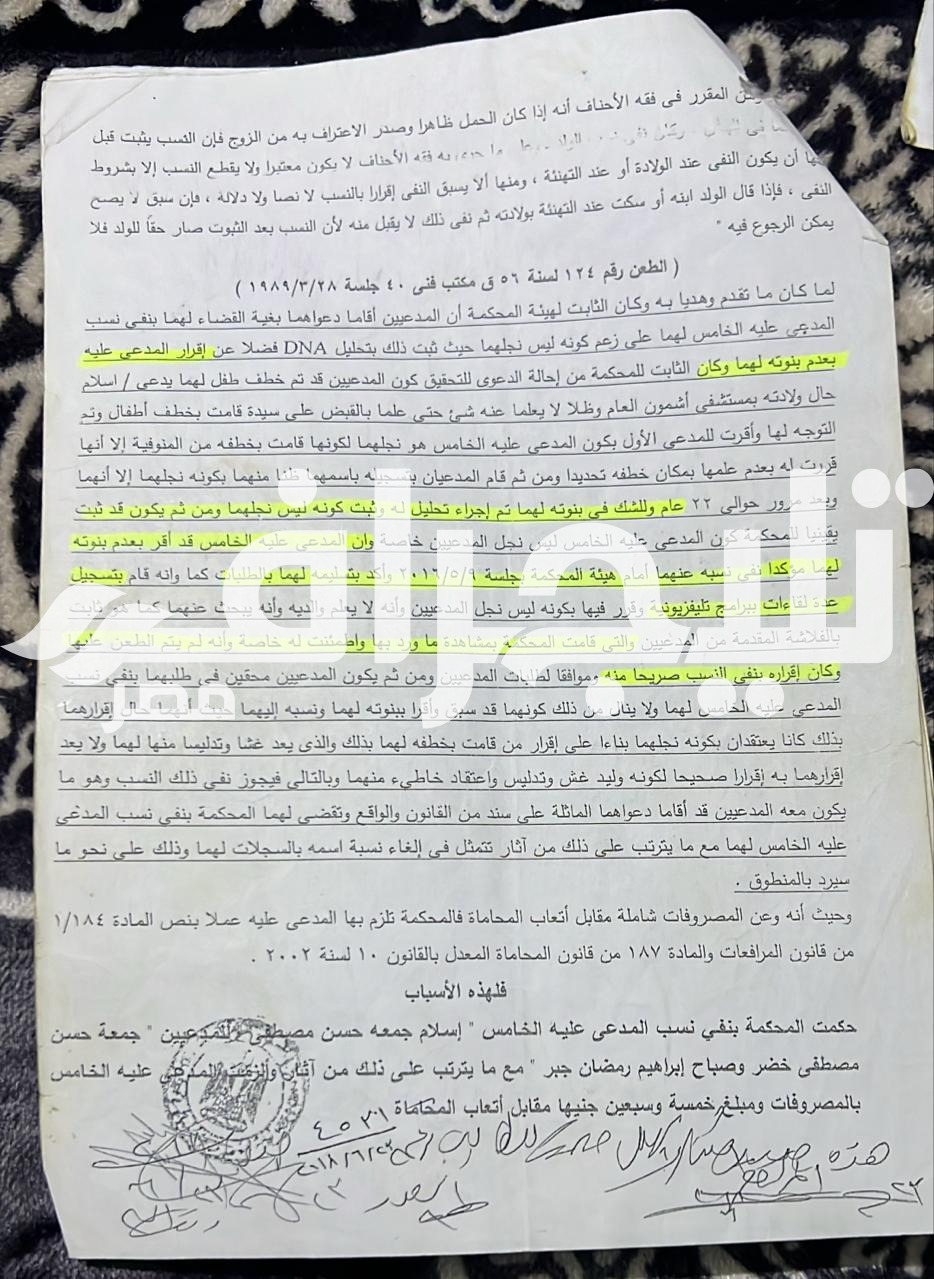 من المقرر فى فقه الأحناف أنه إذا كان الحمل ظاهرا وصدر الاعتراف به من الزوج فإن النسب يثبت قبل
فقه الأحناف لا يكون معتبرا ولا يقطع النسب إلا بشروط
أن يكون النفى عند الولادة أو عند التهنئة ، ومنها ألا يسبق النفى إقرارا بالنسب لا نصا ولا دلالة ، فإن سبق لا يصح
النفى ، فإذا قال الولد ابنه أو سكت عند التهنئة بولادته ثم نفى ذلك لا يقبل منه لأن النسب بعد الثبوت صار حقاً للولد فلا
يمكن الرجوع فيه "
( الطعن رقم ١٢٤ لسنة ٥٦ ق مكتب فنى ٤٠ جلسة ١٩٨٩/٣/٢٨ )
لما كان ما تقدم وهديا به وكان الثابت لهيئة المحكمة أن المدعيين أقاما دعواهما بغية القضاء لهما بنفى نسب
المدعى عليه الخامس لهما على زعم كونه ليس نجلهما حيث ثبت ذلك بتحليل DNA فضلا عن إقرار المدعى عليه
بعدم بنوته لهما وكان الثابت للمحكمة من إحالة الدعوى للتحقيق كون المدعيين قد تم خطف طفل لهما يدعى / اسلام
حال ولادته بمستشفى أشمون العام وظلا لا يعلما عنه شئ حتى علما بالقبض على سيدة قامت بخطف أطفال وتم
التوجه لها وأقرت للمدعى الأول بكون المدعى عليه الخامس هو نجلهما لكونها قامت بخطفه من المنوفية إلا أنها
قررت له بعدم علمها بمكان خطفه تحديدا ومن ثم قام المدعيان بتسجيله باسمهما ظنا منهما بكونه نجلهما إلا أنهما
وبعد مرور حوالى ٢٢ عام وللشك فى بنوته لهما تم إجراء تحليل له وثبت كونه ليس نجلهما ومن ثم يكون قد ثبت
يقينيا للمحكمة كون المدعى عليه الخامس ليس نجل المدعيين خاصة وان المدعى عليه الخامس قد أقر بعدم بنوته
لهما مؤكدا نفى نسبه عنهما أمام هيئة المحكمة بجلسة ٢٠١٦/٥/٩ وأكد بتسليمه لهما بالطلبات كما وانه قام بتسجيل
عدة لقاءات ببرامج تليفزيونية وقرر فيها بكونه ليس نجل المدعيين وأنه لا يعلم والديه وأنه يبحث عنهما كما هو ثابت
بالفلاشة المقدمة من المدعيين والتي قامت المحكمة بمشاهدة ما ورد بها واطمئنت له خاصة وأنه لم يتم الطعن عليها
وكان إقراره بنفى النسب صريحا منه وموافقا لطلبات المدعيين ومن ثم يكون المدعيين محقين فى طلبهما بنفى نسب
المدعى عليه الخامس لهما ولا ينال من ذلك كونهما قد سبق وأقرا ببنوته لهما ونسبه إليهما حيث أنهما حال إقرارهما
بذلك كانا يعتقدان بكونه نجلهما بناءا على إقرار من قامت بخطفه لهما بذلك والذى يعد غشا وتدليسا منها لهما ولا يعد
إقرارهما به إقرارا صحيحا لكونه وليد غش وتدليس واعتقاد خاطيء منهما وبالتالى فيجوز نفى ذلك النسب وهو ما
يكون معه المدعيين قد أقاما دعواهما الماثلة على سند من القانون والواقع وتقضى لهما المحكمة بنفى نسب المدعى
عليه الخامس لهما مع ما يترتب على ذلك من آثار تتمثل فى إلغاء نسبة اسمه بالسجلات لهما وذلك على نحو ما
سيرد بالمنطوق .
وحيث أنه وعن المصروفات شاملة مقابل أتعاب المحاماة فالمحكمة تلزم بها المدعى عليه عملا بنص المادة ١/١٨٤
من قانون المرافعات والمادة ١٨٧ من قانون المحاماة المعدل بالقانون ١٠ لسنة ٢٠٠٢ .
فلهذه الأسباب
حكمت المحكمة بنفي نسب المدعى عليه الخامس " إسلام جمعه حسن مصطفى " للمدعيين " جمعة حسن
مصطفى خضر وصباح إبراهيم رمضان جبر " مع ما يترتب على ذلك من آثار وألزمت المدعى عليه الخامس
بالمصروفات ومبلغ خمسة وسبعين جنيها مقابل أتعاب المحاماة
هذه
تليجراف
مصر